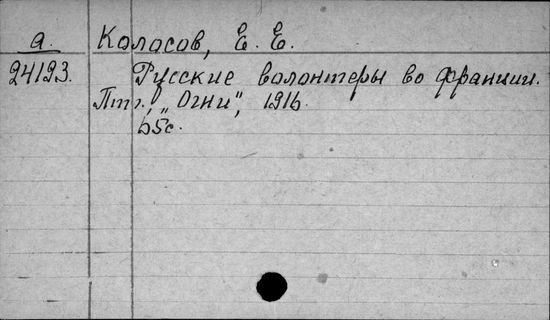 а. Коласов, Е. Е.
24123. Русские волонтеры во франции.
Птг., „Огни", 1916.
65с.